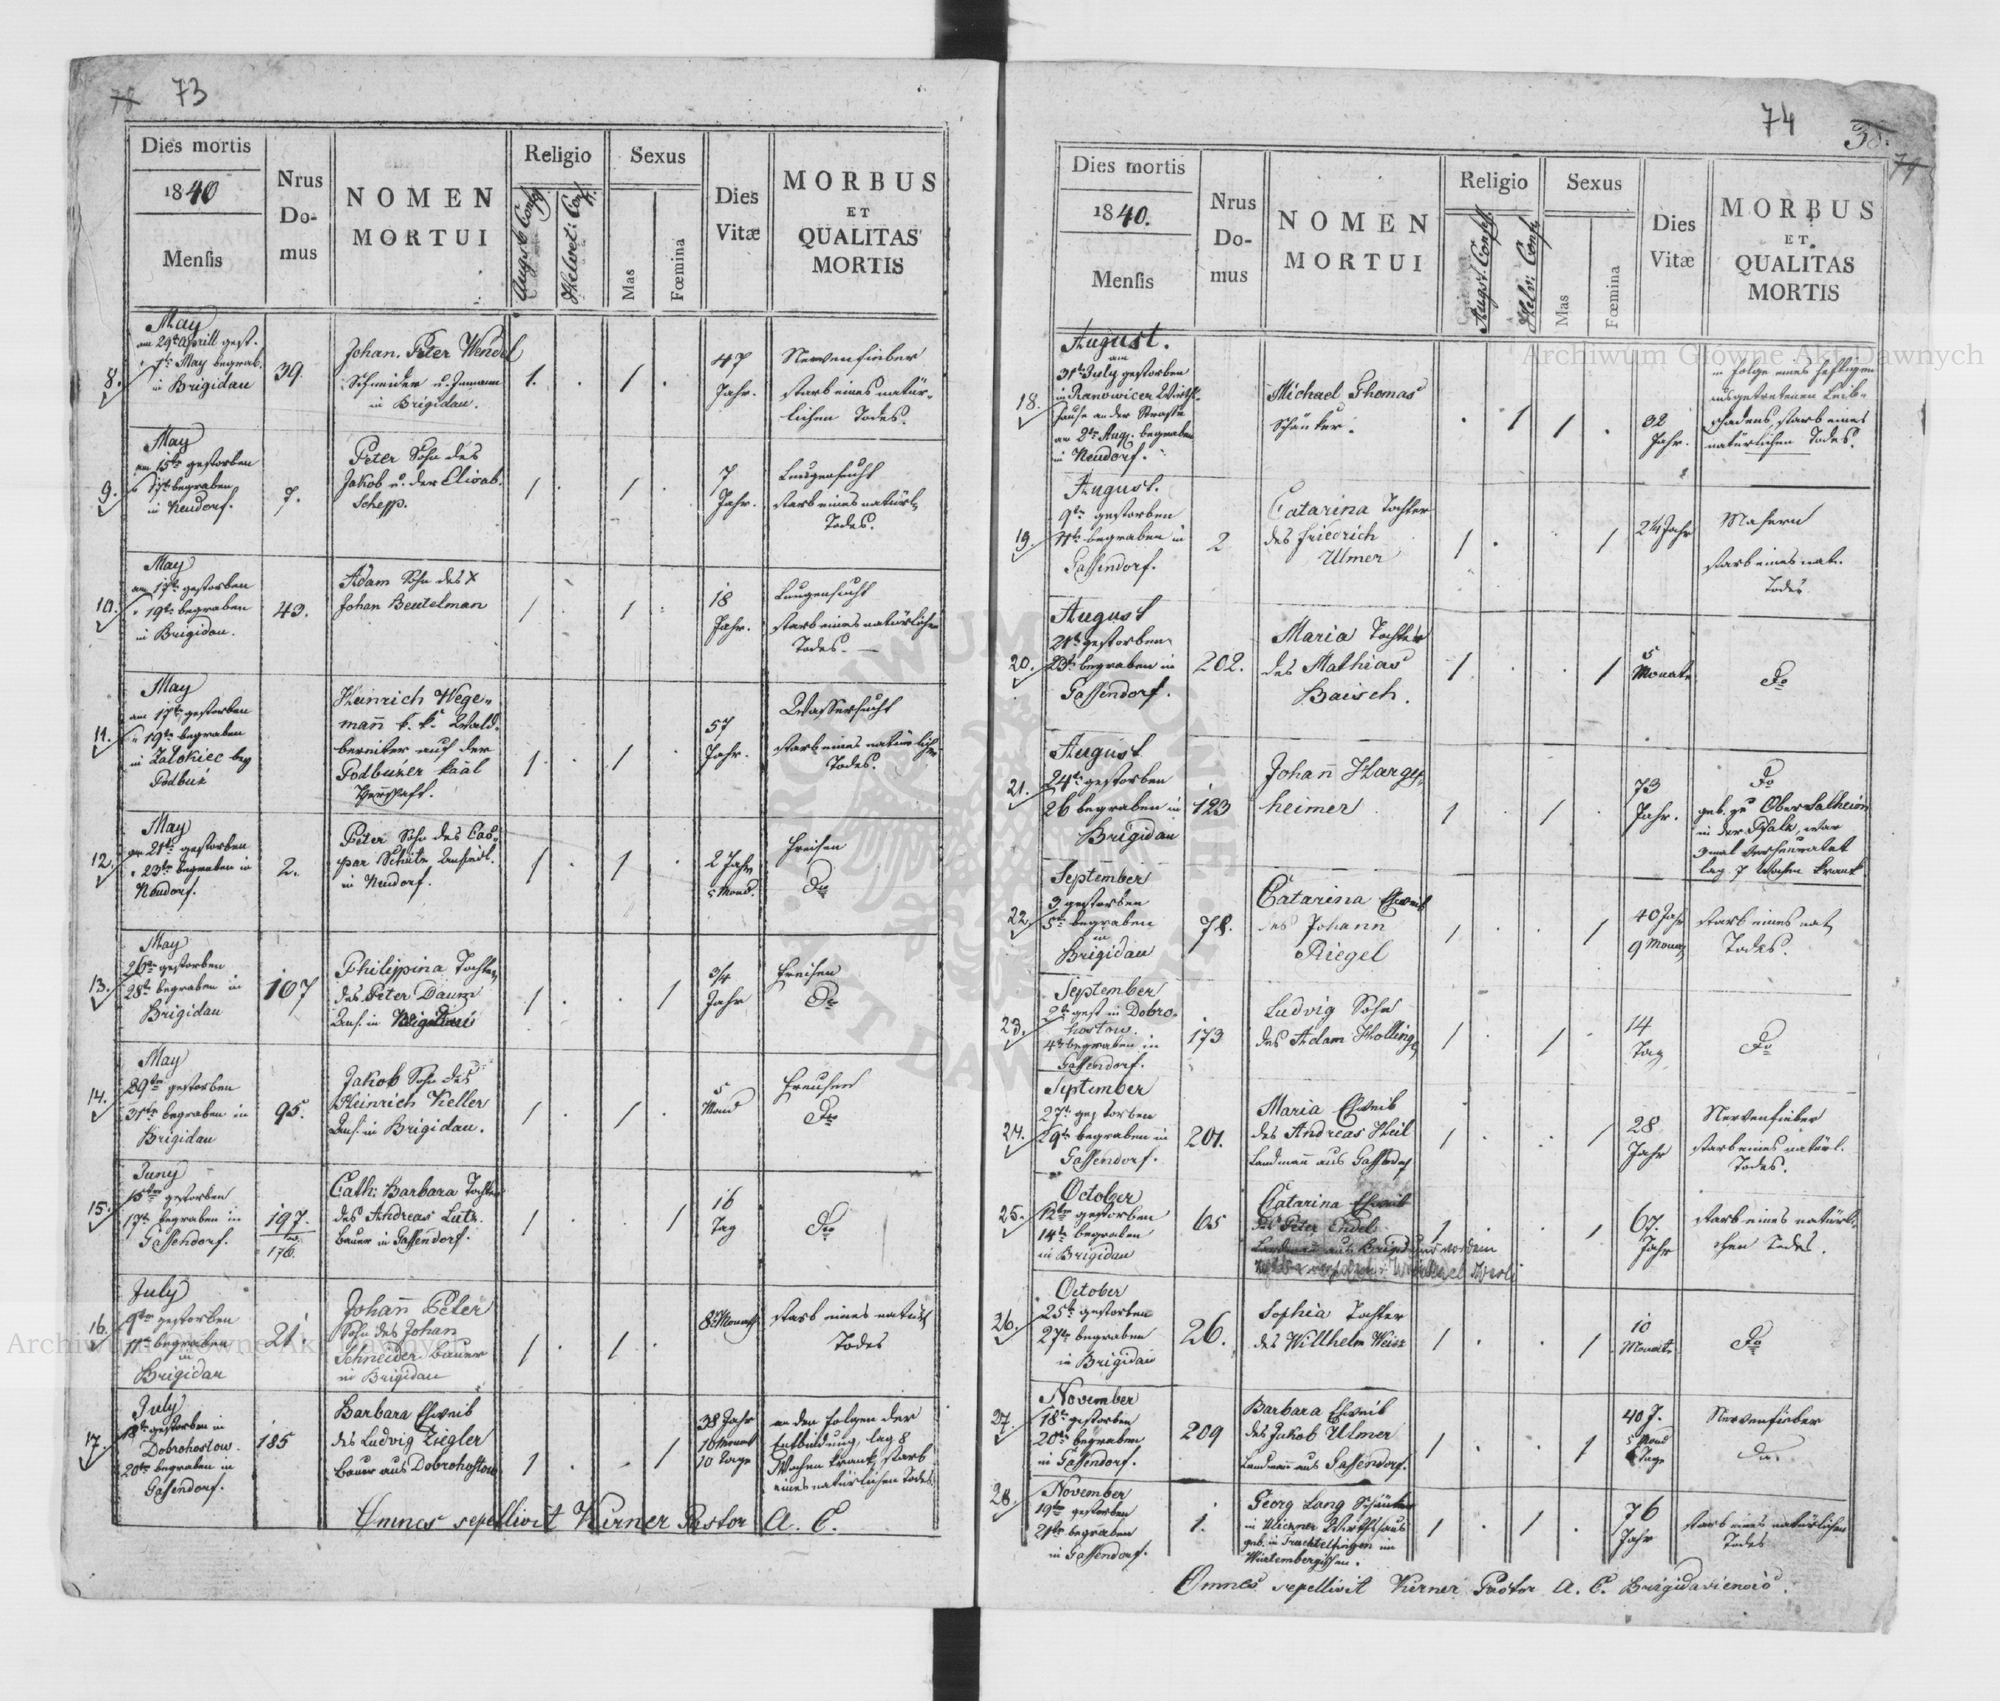 78 73
Dies mortis
1840
Mensis
Nrus Do-mus
NOMEN MORTUI
Religio
Augsb: Conf.
Helvet: Conf.
Sexus
Mas
Fœmina
Dies Vitæ
MORBUS
ET
QUALITAS
MORTIS
8.
May
am 29t Aprill gest.
" 1t May begrab.
in Brigidau
39.
Johan. Peter Wendel
Schneider u.
in Brigidau.
1. . 1 .
47
Jahr.
Nervenfieber
starb eines natür-
lichen Todes.
9.
May
am 15ten gestorben
" 17t begraben
in Neudorf.
7.
Peter Sohn des
Jakob u. der Elisab.
Schepp.
1 . 1 .
7
Jahr.
Lungensucht
starb eines natürl.
Todes.
10.
May
am 17ten gestorben
" 19ten begraben
in Brigidau.
43.
Adam Sohn des x
Johan Beutelman
1 . 1 .
18
Jahr.
Lungensucht
starb eines natürlichen
Todes. —
11.
May
am 17ten gestorben
" 19ten begraben
in Zalokiec bey
Podbuż
Heinrich Wege-
mañ k. k. Wald-
bereiter auf der
Podbużer Kaal
Herrschaft.
1 . 1 .
57
Jahr.
Wassersucht
starb eines natürlich
Todes.
12.
May
am 21ten gestorben
" 23ten begraben in
Neudorf.
2.
Peter Sohn des Cas-
par Schütz Ansiedl.
in Neudorf.
1 . 1 .
2 Jahr
5 Mond.
Freisen
Do
13.
May
26ten gestorben
28ten begraben in
Brigidau
107
Philippina Tochter
des Peter Daum
Ans. in Brigidau
1 . . 1
3/4
Jahr
Freisen
Do
14.
May
29ten gestorben
31ten begraben in
Brigidau
95.
Jakob Sohn des
Heinrich Keller
Ans. in Brigidau.
1 . 1 .
5
Mond
Freusen
Do
15.
Juny
15ten gestorben
17ten begraben in
Gassendorf.
197.
176.
Cath: Barbara Tochter
des Andreas Lutz
Bauer in Gassendorf.
1 . . 1
16
Tag
Do
16.
July
9ten gestorben
11ten begraben
in
Brigidau
21.
Johañ Peter
Sohn des Johan
Schneider Bauer
in Brigidau
1 . 1 .
8 Monath
starb eines natürl
Todes
17.
July
18ten gestorben in
Dobrohostow.
20ten begraben in
Gassendorf.
185
Barbara Eheweib
des Ludvig Ziegler
Bauer aus Dobrohostow
1 . . 1
38 Jahr
10 Monat
10 Tage
an den Folgen der
Entbindung, lag 8
Wochen krank, starb
eines natürlichen Todes
Omnes sepellivit Kirner Pastor A. C.
74 38. 79
Dies mortis
1840.
Mensis
Nrus Do-mus
NOMEN MORTUI
Religio
Augst. Conf.
Helv: Conf.
Sexus
Mas
Fœmina
Dies Vitæ
MORBUS
ET
QUALITAS
MORTIS
18.
August.
am
31t July gestorben
in Ranowicer Wirths-
hause an der Strasse
am 2ten Aug. begraben
in Neudorf.
Michael Thomas
Schänker.
. 1 1 .
32
Jahr.
in Folge eines heftigen
ausgetretenen Leib-
schadens, starb eines
natürlichen Todes.
19.
August.
9ten gestorben
11ten begraben in
Gassendorf.
2
Catarina Tochter
des Friedrich
Ulmer
1 . . 1
2 1/4 Jahr
Masern
starb eines nat.
Todes
20.
August
21t gestorben
23t begraben in
Gassendorf.
202.
Maria Tochter
des Mathias
Baisch.
1 . . 1
5
Monate
Do
21.
August
24ten gestorben
26 begraben in
Brigidau
123
Johañ Hargs-
heimer
1 . 1 .
73
Jahr.
Do
geb. zu Ober
in der Pfalz, war
3 mal verheuratet
lag 7 Wochen krank
22.
September
3 gestorben
5ten begraben
in
Brigidau
78.
Catarina Eheweib
des Johann
Riegel
1 . . 1
40 Jahr
9 Monat
starb eines nat
Todes.
23.
September
2ten gest in Dobro-
hostow.
4ten begraben in
Gassendorf.
173
Ludvig Sohn
des Adam Hollinger
1 . 1 .
14
Tag
Do
24.
September
27t gestorben
29t begraben in
Gassendorf.
201.
Maria Eheweib
des Andreas Heil
Landmañ aus Gassendorf
1 . . 1
28
Jahr
Nervenfieber
starb eines natürl.
Todes.
25.
October
12ten gestorben
14ten begraben
in Brigidau
65
Catarina Eheweib
des Peter Endel
Landmañ aus Brigidau vordem
1 . . 1
67.
Jahr
starb eines natürli-
chen Todes.
26.
October
25ten gestorben
27ten begraben
in Brigidau
26.
Sophia Tochter
des Willhelm Weisz
1 . . 1
10
Monate
Do
27.
November
18ten gestorben
20ten begraben
in Gassendorf.
209
Barbara Eheweib
des Jakob Ulmer
Landmañ aus Gassendorf.
1 . . 1
40 J.
5 Mond
Tage
Nervenfieber
Do.
28.
November
19ten gestorben
21ten begraben
in Gassendorf.
1.
Georg Lang Schänker
in Wirthshaus
geb. in Trachtelfingen im
Würtembergischen.
1 . 1 .
76
Jahr
starb eines natürlichen
Todes
Omnes sepellivit Kirner Pastor A. C. Brigidaviensis.
Archiwum Główne Akt Dawnych
Archiwum Główne Akt Dawnych